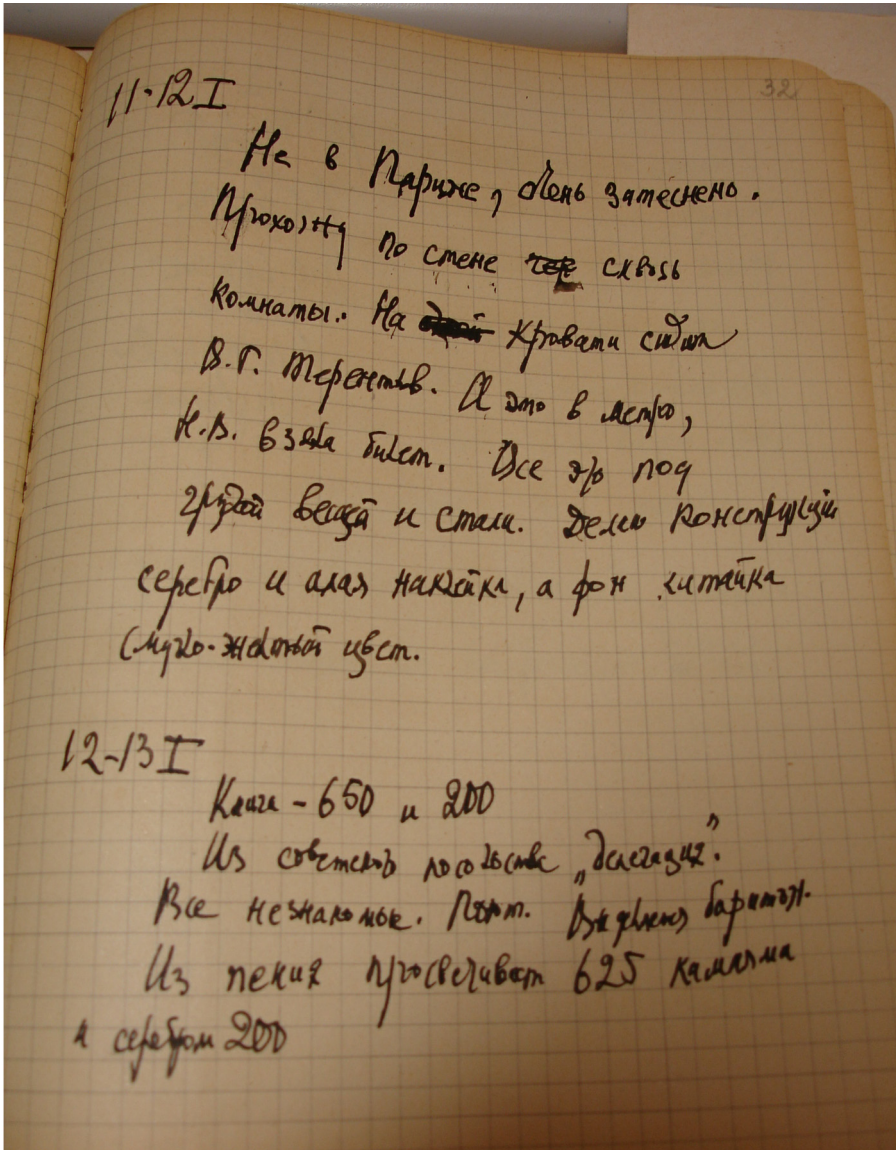 32
11-12 I
Не в Париже, очень затеснено.
Прохожу по стене сквозь
комнаты. На кровати сидит
В.Г. Терентьев. А это в метро,
Н.В. взяла билет. Все это под
грудой вещей и стали. Делаю конструкции
серебро и алая наклейка, а фон китайка
смугло-желтый цвет.
12-13 I
Книга - 650 и 200
Из советского посольства „делегация".
Все незнакомые. Поют. Выделяется баритон.
Из пения просвечивает 625 камнями
и серебром 200